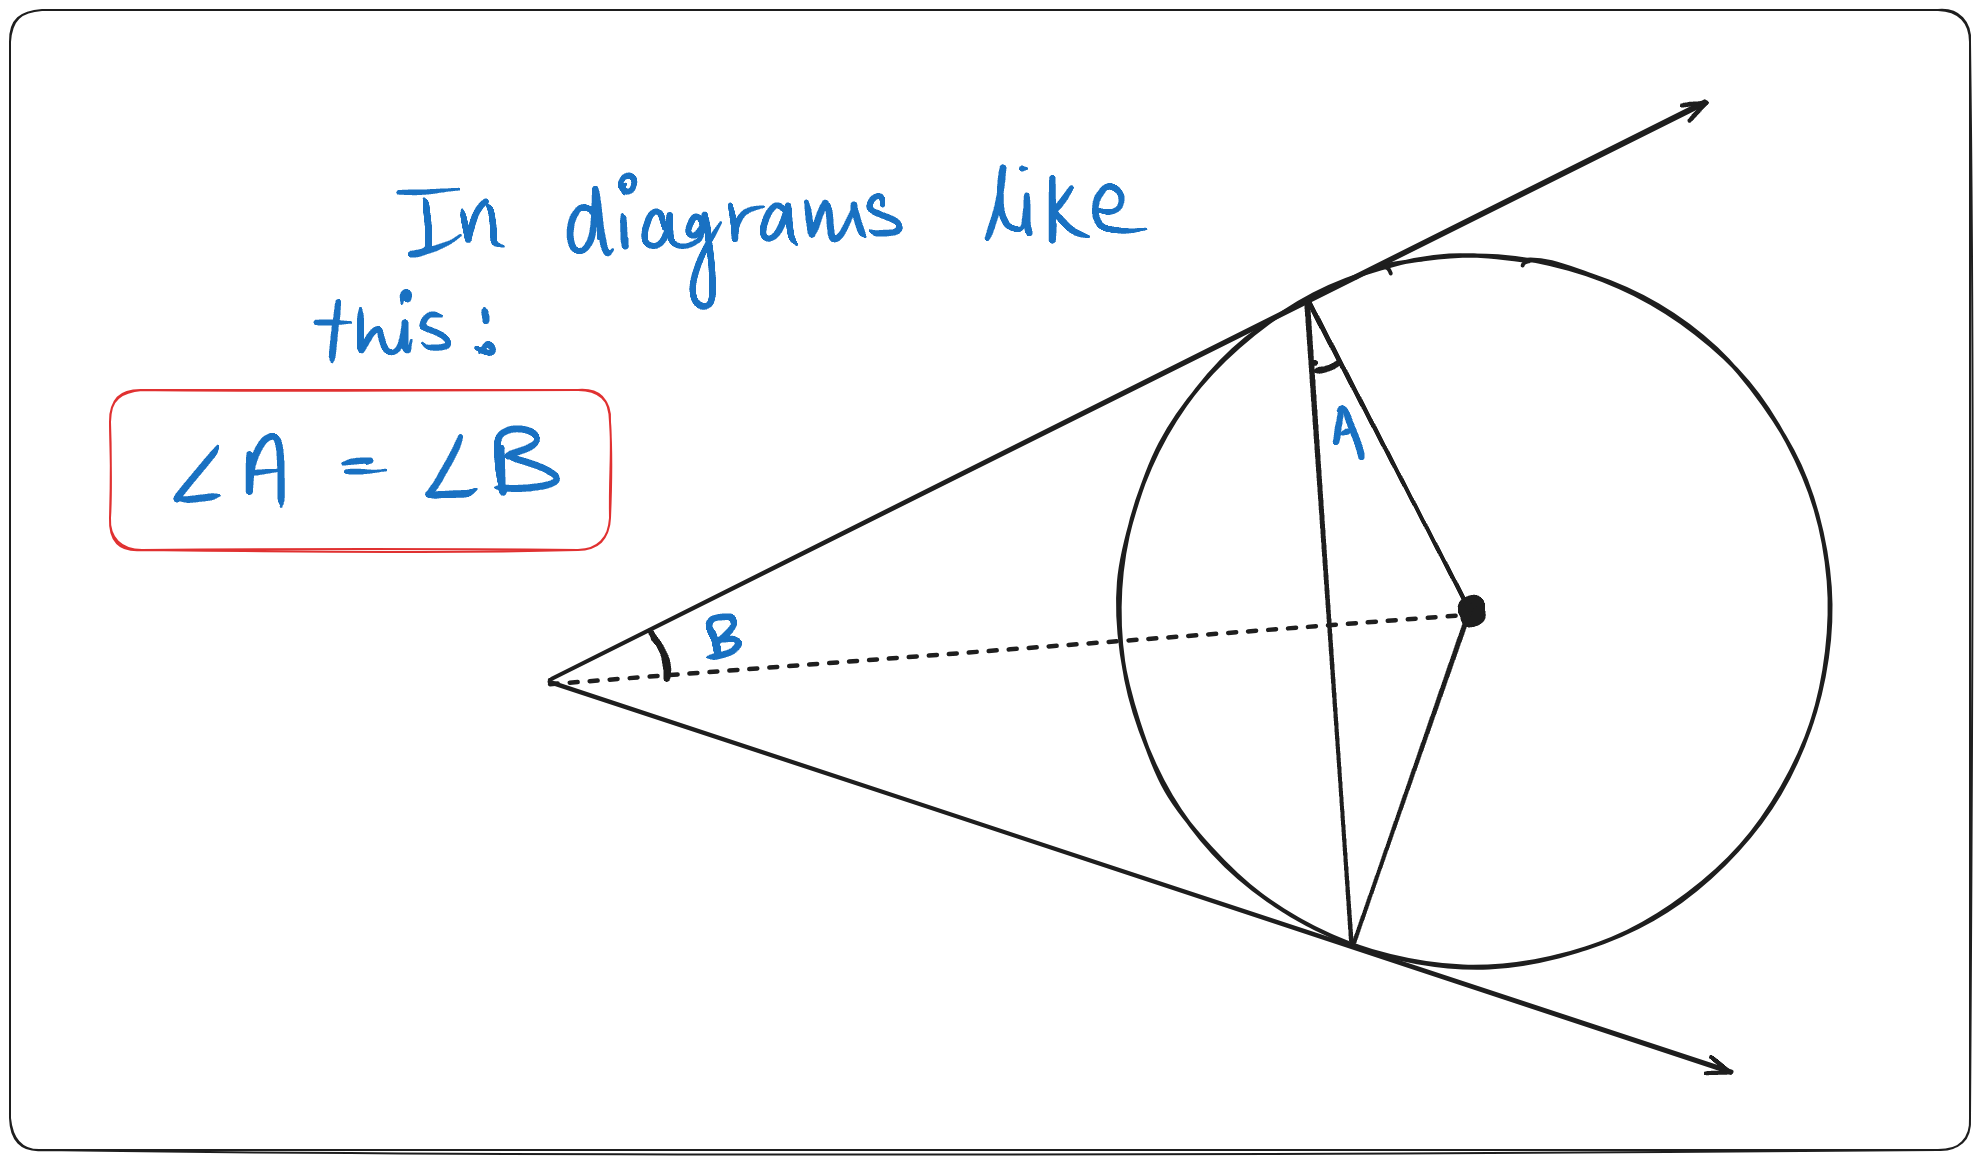 In diagrams like
this:
∠A = ∠B
A
B